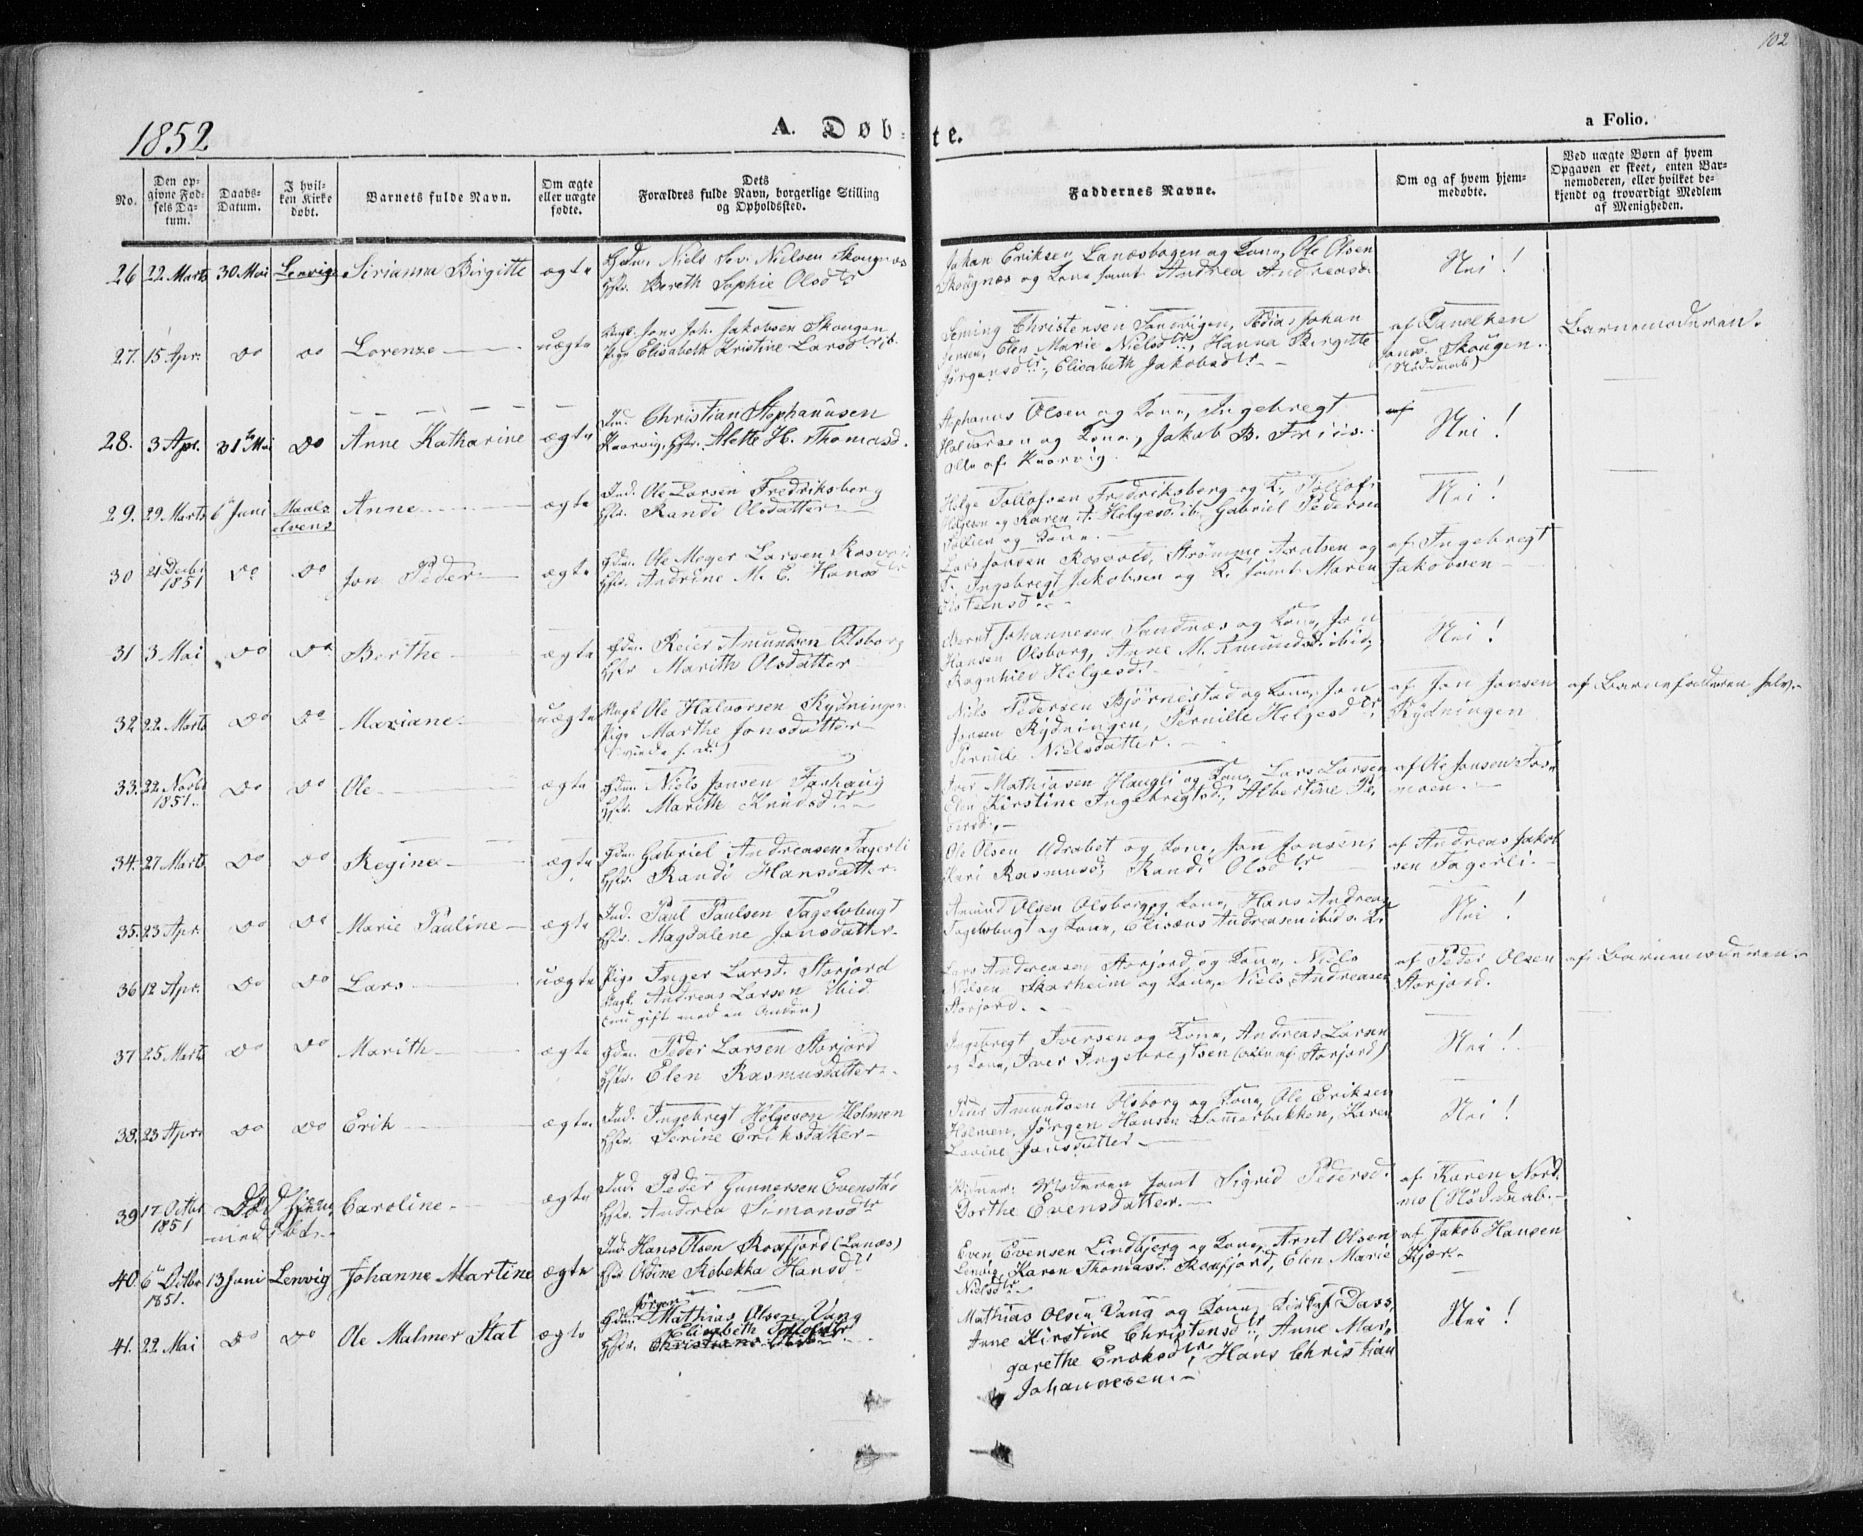 102
1852
A. Døb-
te.
a Folio.
No.
Den op-
givne Fød-
sels Da-
tum.
Daabs-
Datum.
I hvil-
ken Kirke
døbt.
Barnets fulde Navn.
Om ægte
eller uægte
fødte.
Dets
Forældres fulde Navn, borgerlige Stilling
og Opholdssted.
Faddernes Navne.
Om og af hvem hjem-
medøbte.
Ved uægte Børn af hvem
Opgaven er skeet, enten Bar-
nemoderen, eller hvilket be-
kjendt og troværdigt Medlem
af Menigheden.
26 22 Marts 30 Mai Lenvig Sirianna Birgitte ægte
Niels Nielsen Skougnæs
Bereth Sophie Olsdtr
Johan Eriksen Lanæsbogen og Kone, Ole Olsen
Skougnæs og Kone samt Andrea Andreasd.
Nei!
27. 15 Apr. do do Lorenze uægte
Jons Joh. Jakobsen Skougen
Pige Elisabeth Kristine Larsdtr ib.
Christensen Johan
Jensen, Elen Marie Nielsdtr, Hanna Birgitte
Jørgensdtr, Elisabeth Jakobsdtr
af
Skougen.
(Nødsdaab)
Barnemoderen.
28. 3 Apr. 31te Mai do Anne Katharine ægte
Ind. Christian Stephanusen
Kaarvig, Hstr. Alette H. Thomasd.
Stephanus Olsen og Kone, Ingebregt
Halvorsen og Kone, Jakob B. Friis.
Alle af Kaarvig.
Nei!
29. 29 Marts 6 Juni Maals-
elvens Anne ægte
Ind. Ole Larsen Fredriksberg
Hstr. Randi Olsdatter
Helge Tollofsen Fredriksberg og K., Tollof
Helgesen og Karen A. Helgesd. ib. Gabriel Pedersen
og Kone.
Nei!
30 21 Decbr
1851 do do Jon Peder ægte
Gdm. Ole Meyer Larsen Rosvold
Hstr. Andrine M. E. Hansdtr
Lars Jonsen Rosvold, Strømme Arntsen og
K. Ingebregt Jakobsen og K. samt Maren
Osteensdtr.
af Ingebregt
Jakobsen
31 3 Mai do do Berthe ægte
Gdm. Reier Amundsen Olsborg
Hstr Marith Olsdatter
Bernt Johannesen Sandnæs og Kone, Jon
Hansen Olsborg, Anne M. Knudsd. ibid,
Ragnhild Helgesd.
Nei!
32 22 Marts do do Mariane uægte
Ungk. Ole Halvorsen Rydningen
Pige Marthe Jonsdatter
Niels Pedersen Bjørnestad og Kone, Jon
Jonsen Rydningen, Pernille Helgesdtr,
Pernille Nielsdatter.
af Jon Jonsen
Rydningen
af Barnefaderen selv.
33. 22 Novbr
1851. do do Ole ægte
Gdm. Niels Jonsen Foshaug
Hstr. Marith Knudsdtr
Iver Mathiasen Haugli og Kone, Lars Larsen,
Elen Kirstine Ingebregtsd., Albertine Pe-
dersd.
af Ole Jonsen Fos-
moen.
34. 27 Marts do do Regine ægte
Gdm. Gabriel Andreasen Fagerli
Hstr. Randi Hansdatter.
Ole Olsen Udrabet og Kone, Jon Jonsen,
Kari Rasmusd, Randi Olsdtr
af Andreas Jakob-
sen Fagerli.
35. 23 Apr. do do Marie Pauline ægte
Ind. Paul Paulsen Fagelvbugt
Hstr. Magdalene Jonsdatter
Amund Olsen Olsborg og Kone, Hans Andreas
Fagelvbugt og Kone, Elisæus Andreasen ibid
Nei!
36 12 Apr. do do Lars uægte
Pige Inger Larsd. Storjord
Ungk. Andreas Larsen ibid
(nu gift med en Anden)
Lars Andreasen Storjord og Kone, Niels
Nilsen Skarheim og Kone, Niels Andreasen
Storjord.
af Peder Olsen
Storjord.
af Barnemoderen.
37 25 Marts do do Marith ægte
Gdm. Peder Larsen Storjord
Hstr. Elen Rasmusdatter.
Ingebregt Iversen og Kone, Andreas Larsen
og Kone, Iver Ingebregtsen (alle af Storjord)
Nei!
38. 23 Apr. do do Erik ægte
Ind. Ingebregt Helgesen Holmen
Hstr. Serine Eriksdatter
Peder Amundsen Olsborg og Kone, Ole Eriksen
Holmen, Jørgen Hansen Sommerbakken, Karen
Lovine Jonsdatter
Nei!
39 17 Octbr
1851 Død
Caroline ægte
Ind. Peder Gunnersen Evenstad
Hstr. Andrea Simonsdtr
Moderen samt Sigrid Pedersd.
Dorthe Evensdatter.
af Karen Nord-
mo (Nødsdaab.
40 6 Octbr
1851. 13 Juni Lenvig Johanne Martine ægte
Ind. Hans Olsen Rossfjord (Lanæs)
Hstr Oldine Rebekka Hansd.
Even Evensen Lindbjerg og Kone, Arnt Olsen
Lenvig, Karen Thomasd. Rossfjord, Elen Marie
Nielsdtr.
af Jakob Hansen
Kjær.
41. 22 Mai do do Ole Malmer Stat ægte
Jørgen
Gdm. Mathias Olsen Vang
Elisabeth Tollefsdtr
Hstr. Christiane
Mathias Olsen Vang og Kone, Dass,
Anne Kirstine Christensdtr, Anne Mar-
garethe Eriksdtr, Hans Christian
Johannesen.
Nei!